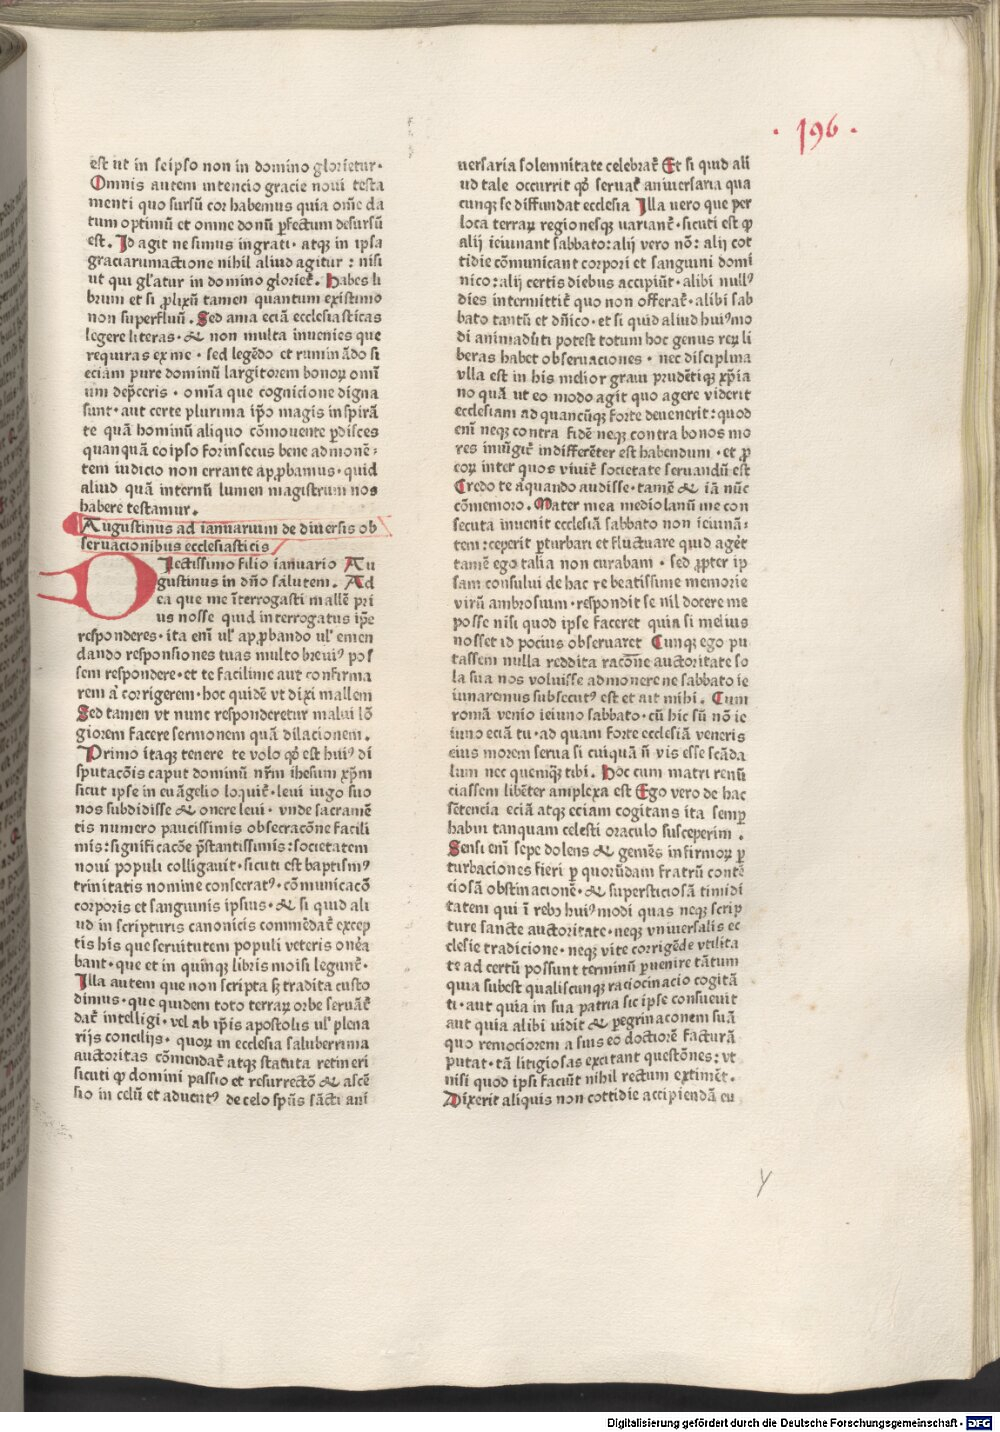 · 196 ·
est ut in seipso non in domino glorietur·
Omnis autem intencio gracie noui testa
menti quo sursū cor habemus quia om̄e da
tum optimū et omne donū ꝑfectum desursū
est. Id agit ne simus ingrati· atqꝫ in ipsa
graciarumactione nihil aliud agitur : nisi
ut qui gl'atur in domino glorieť. Habes li
brum et si ꝓlixū tamen quantum existimo
non superfluū. Sed ama eciā ecclesiasticas
legere literas· & non multa inuenies que
requiras ex me · sed legēdo et ruminādo si
eciam pure dominū largitorem bonoꝝ omī
um dep̄ceris · omīa que cognicione digna
sunt· aut certe plurima ip̄o magis inspirā
te quā hominū aliquo cōmouente ꝑdisces
quanquā eo ipso forinsecus bene admonē⸗
tem iudicio non errante aꝓꝓbamus· quid
aliud quā internū lumen magistrum nos
habere testamur.
Augustinus ad ianuarium de diuersis ob
seruacionibus ecclesiasticis
Dilectissimo filio ianuario Au
gustinus in dño salutem. Ad
ea que me īterrogasti mallē pri
us nosse quid interrogatus ip̄e
responderes· ita enī ul' aꝓꝓbando ul' emen
dando responsiones tuas multo breuiꝰ pos
sem respondere· et te facilime aut confirma
rem aꝉ corrigerem· hoc quidē vt dixi mallem
Sed tamen vt nunc responderetur malui lō
giorem facere sermonem quā dilacionem.
Primo itaqꝫ tenere te volo qđ est huiꝰ di
sputacōis caput dominū nr̄m ihesum xp̄m
sicut ipse in euāgelio loquiť· leui iugo suo
nos subdidisse & onere leui· vnde sacramē
tis numero paucissimis obseruacōne facili
mis: significacōe p̄stantissimis: societatem
noui populi colligauit· sicuti est baptismꝰ
trinitatis nomine consecratꝰ· cōmunicacō
corporis et sanguinis ipsius· & si quid ali
ud in scripturis canonicis commēdať excep
tis his que seruitutem populi veteris onēa
bant· que et in quinqꝫ libris moisi legunť·
Illa autem que non scripta sꝫ tradita custo
dimus· que quidem toto terraꝝ orbe seruāť
dať intelligi· vel ab ip̄is apostolis ul' plena
rijs concilijs· quoꝝ in ecclesia saluberrima
auctoritas cōmendať atqꝫ statuta retineri
sicuti ꝙ domini passio et resurrectō & ascē
sio in celū et aduentꝰ de celo spūs sācti ani
uersaria solemnitate celebrať Et si quid ali
ud tale occurrit qđ seruať aniuersaria qua
cunqꝫ se diffundat ecclesia Illa uero que per
loca terraꝝ regionesqꝫ uarianť· sicuti est ꝙ
alij ieiunant sabbato: alij vero nō: alij cot
tidie cōmunicant corpori et sanguini domi
nico: alij certis diebus accipiūt· alibi nullꝰ
dies intermittiť quo non offerať· alibi sab
bato tantū et dñico· et si quid aliud huiꝰmo
di animad̄uti potest totum hoc genus reꝝ li
beras habet obseruaciones · nec disciplina
vlla est in his melior graui prudētiqꝫ xp̄ia
no quā ut eo modo agit quo agere viderit
ecclesiam ad quancūqꝫ forte deuenerit: quod
enī neqꝫ contra fidē neqꝫ contra bonos mo
res iniūgiť indifferēter est habendum · et ꝓ
eoꝝ inter quos viuiť societate seruandū est
Credo te aꝉquando audisse· tamē & iā nūc
cōmemoro. Mater mea mediolanū me con
secuta inuenit ecclesiā sabbato non ieiunā⸗
tem: ceperit ꝑturbari et fluctuare quid ageret
tamē ego talia non curabam · sed ꝓpter ip
sam consului de hac re beatissime memorie
virū ambrosium· respondit se nil docere me
posse nisi quod ipse faceret quia si melius
nosset id pocius obseruaret Cunqꝫ ego pu
tassem nulla reddita racōne auctoritate so
la sua nos voluisse admonere ne sabbato ie
iunaremus subsecutꝰ est et ait mihi. Cum
romā venio ieiuno sabbato· cū hic sū nō ie
iuno eciā tu· ad quam forte ecclesiā veneris
eius morem serua si cuiquā ñ vis esse scāda
lum nec quemqꝫ tibi. Hoc cum matri renū
ciassem libēter amplexa est Ego vero de hac
sētencia eciā atqꝫ eciam cogitans ita semꝑ
habui tanquam celesti oraculo susceperim .
Sensi enī sepe dolens & gemēs infirmoꝝ ꝑ
turbaciones fieri ꝑ quorūdam fratrū contē
ciosā obstinacionē· & supersticiosā timidi
tatem qui ī rebꝰ huiꝰmodi quas neqꝫ scrip
ture sancte auctoritate· neqꝫ vniuersalis ec
clesie tradicione· neqꝫ vite corrigēde vtilita
te ad certū possunt terminū ꝑuenire tātum
quia subest qualiscunqꝫ raciocinacio cogitā
ti· aut quia in sua patria sic ipse consueuit
aut quia alibi uidit & ꝑegrinaconem suā
quo remociorem a suis eo doctiorē facturā
putat· tā litigiosas excitant questōnes: vt
nisi quod ipsi faciūt nihil rectum extimēt.
Dixerit aliquis non cottidie accipiendā eu
y
Digitalisierung gefördert durch die Deutsche Forschungsgemeinschaft - DFG